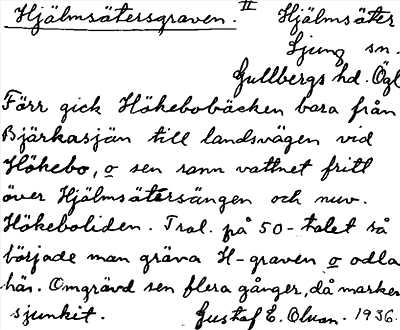 Hjälmsätersgraven. II Hjälmsäter
Ljung sn.
Gullbergs hd. Ögl
Förr gick Hökebobäcken bara från
Bjärkasjön till landsvägen vid
Hökebo, o sen rann vattnet fritt
över Hjälmsätersängen och nuv.
Hökeboliden. Tral. på 50-talet så
började man gräva H-graven o odla
här. Omgrävd sen flera gånger, då marken
sjunkit. Gustaf E. Olsson. 1936.